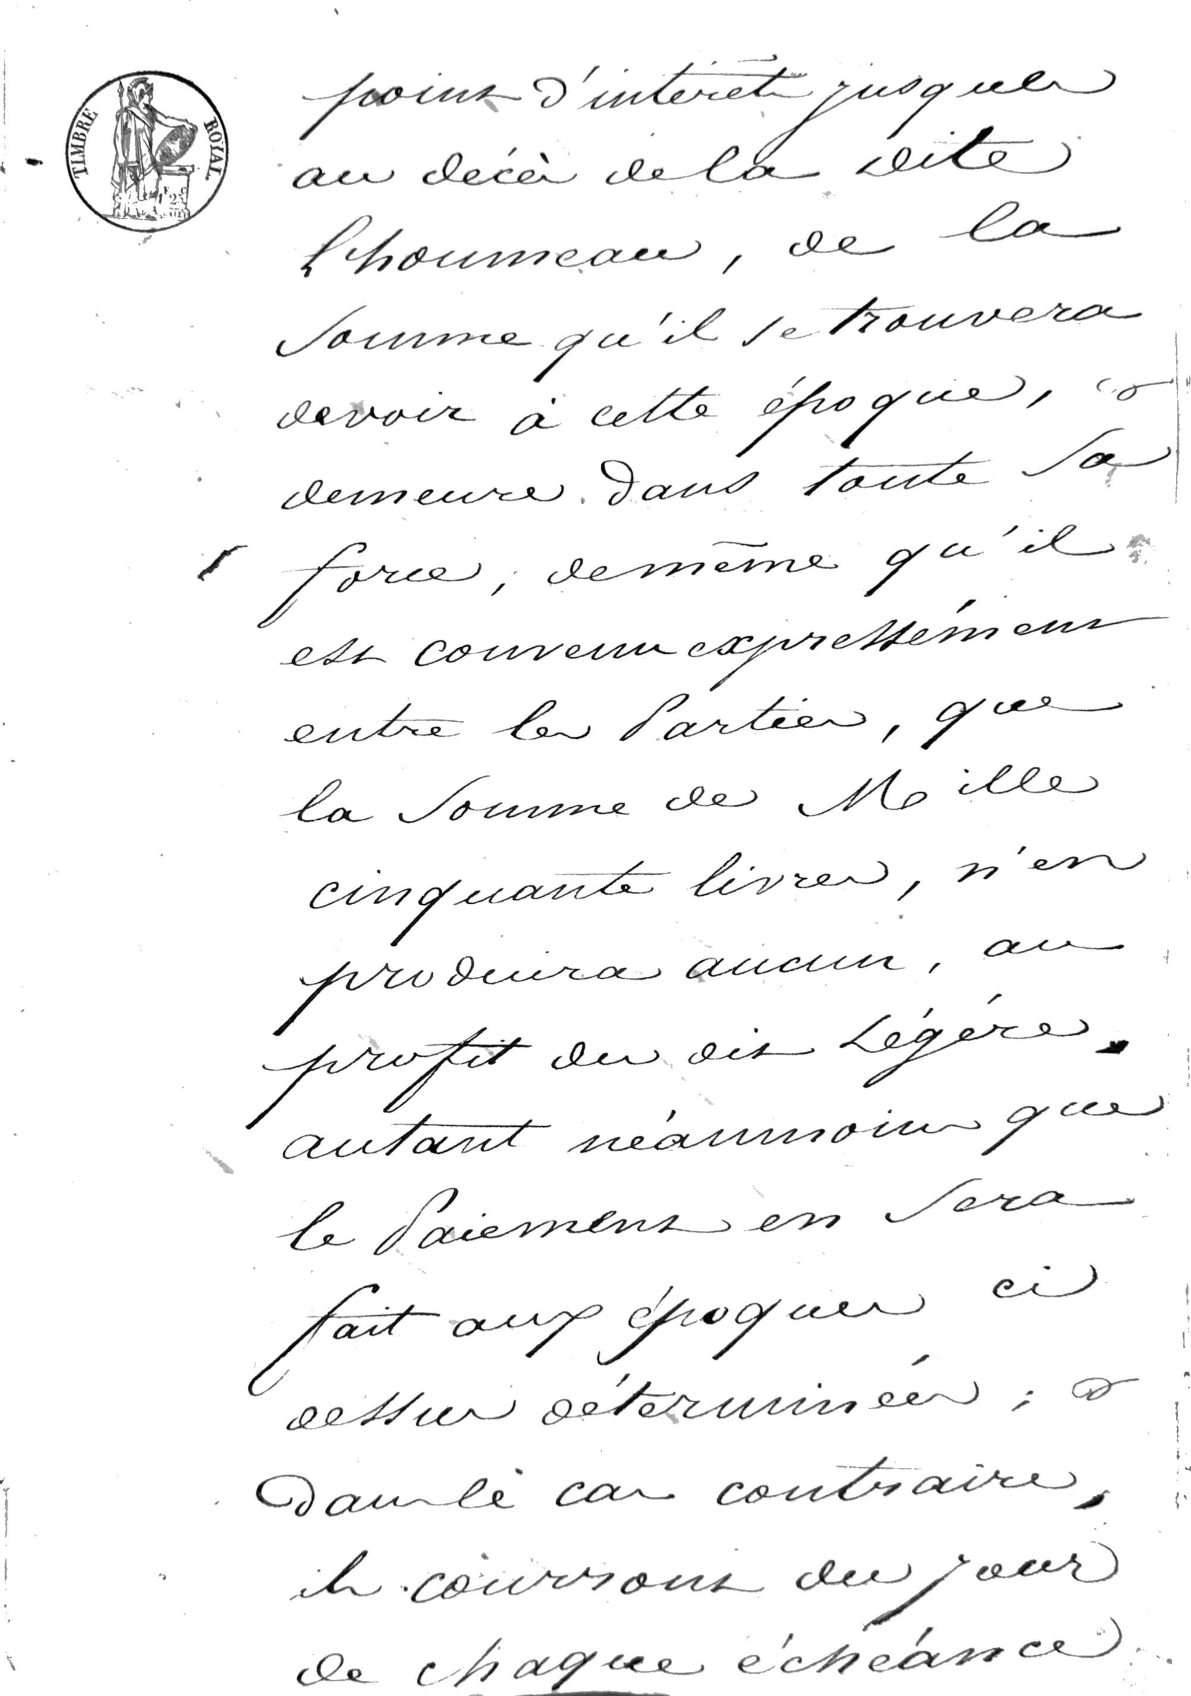 TIMBRE ROYAL
point d'intérêts jusques
au décès de la dite
Lhoumeau, de la
Somme qu'il se trouvera
devoir à cette époque, &
demeure dans toute Sa
force, de même qu'il
est convenu expressément
entre les Parties, que
la Somme de Mille
cinquante livres, n'en
produira aucun, au
profit du dit Légére,
autant néanmoins que
le Paiement en Sera
fait aux époques ci
dessus déterminées ; &
Dans lé cas contraire,
ils courront du jour
de chaque échéance